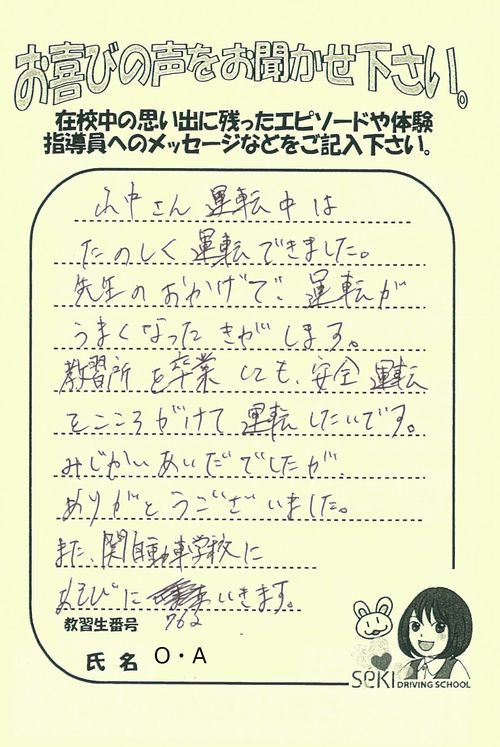 お喜びの声をお聞かせ下さい。
在校中の思い出に残ったエピソードや体験
指導員へのメッセージなどをご記入下さい。
さん 運転中は
たのしく運転できました。
先生のおかげで、運転が
うまくなったきがします。
教習所を卒業しても、安全運転
をこころがけて運転したいです。
みじかいあいだでしたが、
ありがとうございました。
また、関自動車学校に
あそびにいきます。
教習生番号
762
氏名 O・A
SEKI DRIVING SCHOOL